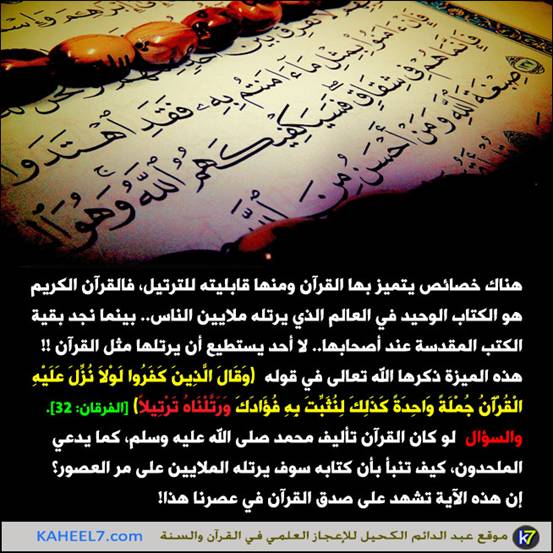 لَا نُفَرِّقُ بَيْنَ
فَإِنْ ءَامَنُوا۟ بِمِثْلِ مَآ ءَامَنتُم بِهِۦ فَقَدِ ٱهْتَدَوا۟
فَإِنَّمَا هُمْ فِى شِقَاقٍ فَسَيَكْفِيكَهُمُ ٱللَّهُ وَهُوَ
صِبْغَةَ ٱللَّهِ وَمَنْ أَحْسَنُ مِنَ ٱللَّهِ
هناك خصائص يتميز بها القرآن ومنها قابليته للترتيل، فالقرآن الكريم
هو الكتاب الوحيد في العالم الذي يرتله ملايين الناس.. بينما نجد بقية
الكتب المقدسة عند أصحابها.. لا أحد يستطيع أن يرتلها مثل القرآن !!
هذه الميزة ذكرها الله تعالى في قوله (وَقَالَ الَّذِينَ كَفَرُوا لَوْلَا نُزِّلَ عَلَيْهِ
الْقُرْآَنُ جُمْلَةً وَاحِدَةً كَذَلِكَ لِنُثَبِّتَ بِهِ فُؤَادَكَ وَرَتَّلْنَاهُ تَرْتِيلًا) [الفرقان: 32].
والسؤال لو كان القرآن تأليف محمد صلى الله عليه وسلم، كما يدعي
الملحدون، كيف تنبأ بأن كتابه سوف يرتله الملايين على مر العصور؟
إن هذه الآية تشهد على صدق القرآن في عصرنا هذا!
موقع عبد الدائم الكحيل للإعجاز العلمي في القرآن والسنة KAHEEL7.com
k7